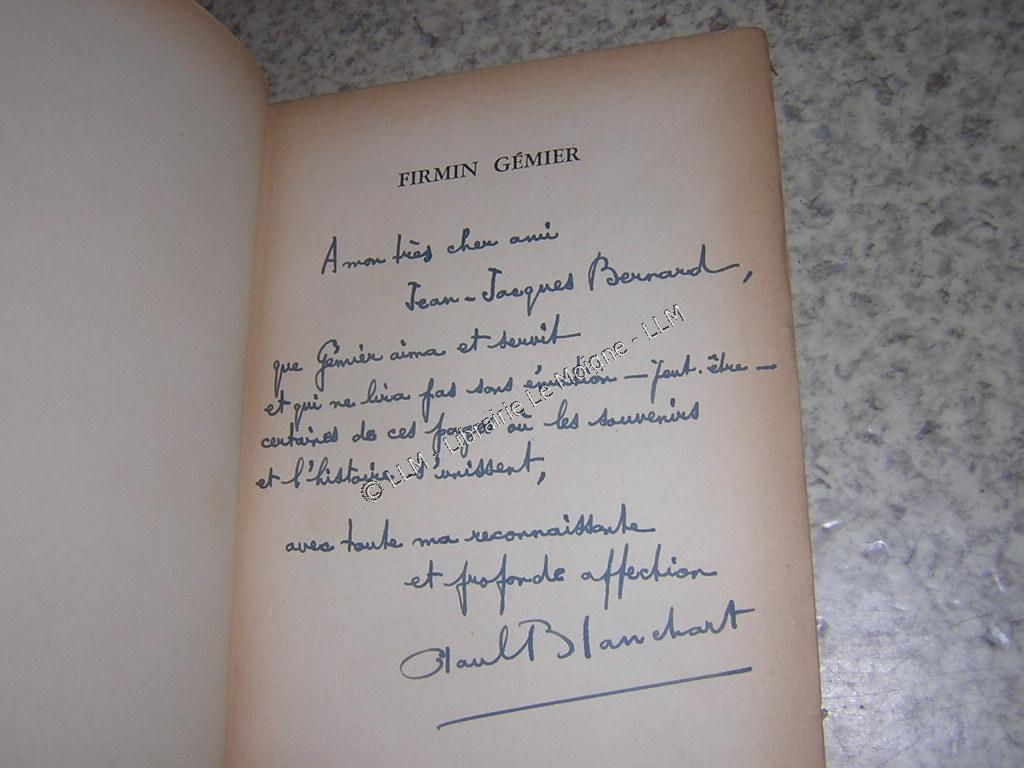 FIRMIN GÉMIER
A mon très cher ami
Jean-Jacques Bernard,
que Gémier aima et servit
et qui ne lira pas sans émotion — peut-être —
certaines de ces pages où les souvenirs
et l'histoire s'unissent,
avec toute ma reconnaissante
et profonde affection
Paul Blanchart
© LLM - Librairie Le Moigne - LLM